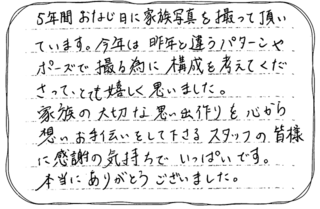 5年間おなじ日に家族写真を撮って頂い
ています。今年は昨年と違うパターンや
ポーズで撮る為に構成を考えてくだ
さっていとても嬉しく思いました。
家族の大切な思い出作りを心から
想いお手伝いをして下さるスタッフの皆様
に感謝の気持ちでいっぱいです。
本当にありがとうございました。